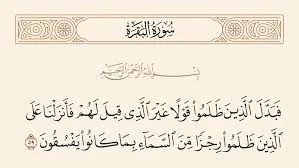 سُورَةُ البَقَرَةِ
بِسْمِ اللَّهِ الرَّحْمَٰنِ الرَّحِيمِ
فَبَدَّلَ الَّذِينَ ظَلَمُوا۟ قَوْلًا غَيْرَ الَّذِى قِيلَ لَهُمْ فَأَنزَلْنَا عَلَى
الَّذِينَ ظَلَمُوا۟ رِجْزًا مِّنَ السَّمَآءِ بِمَا كَانُوا۟ يَفْسُقُونَ ٥٩